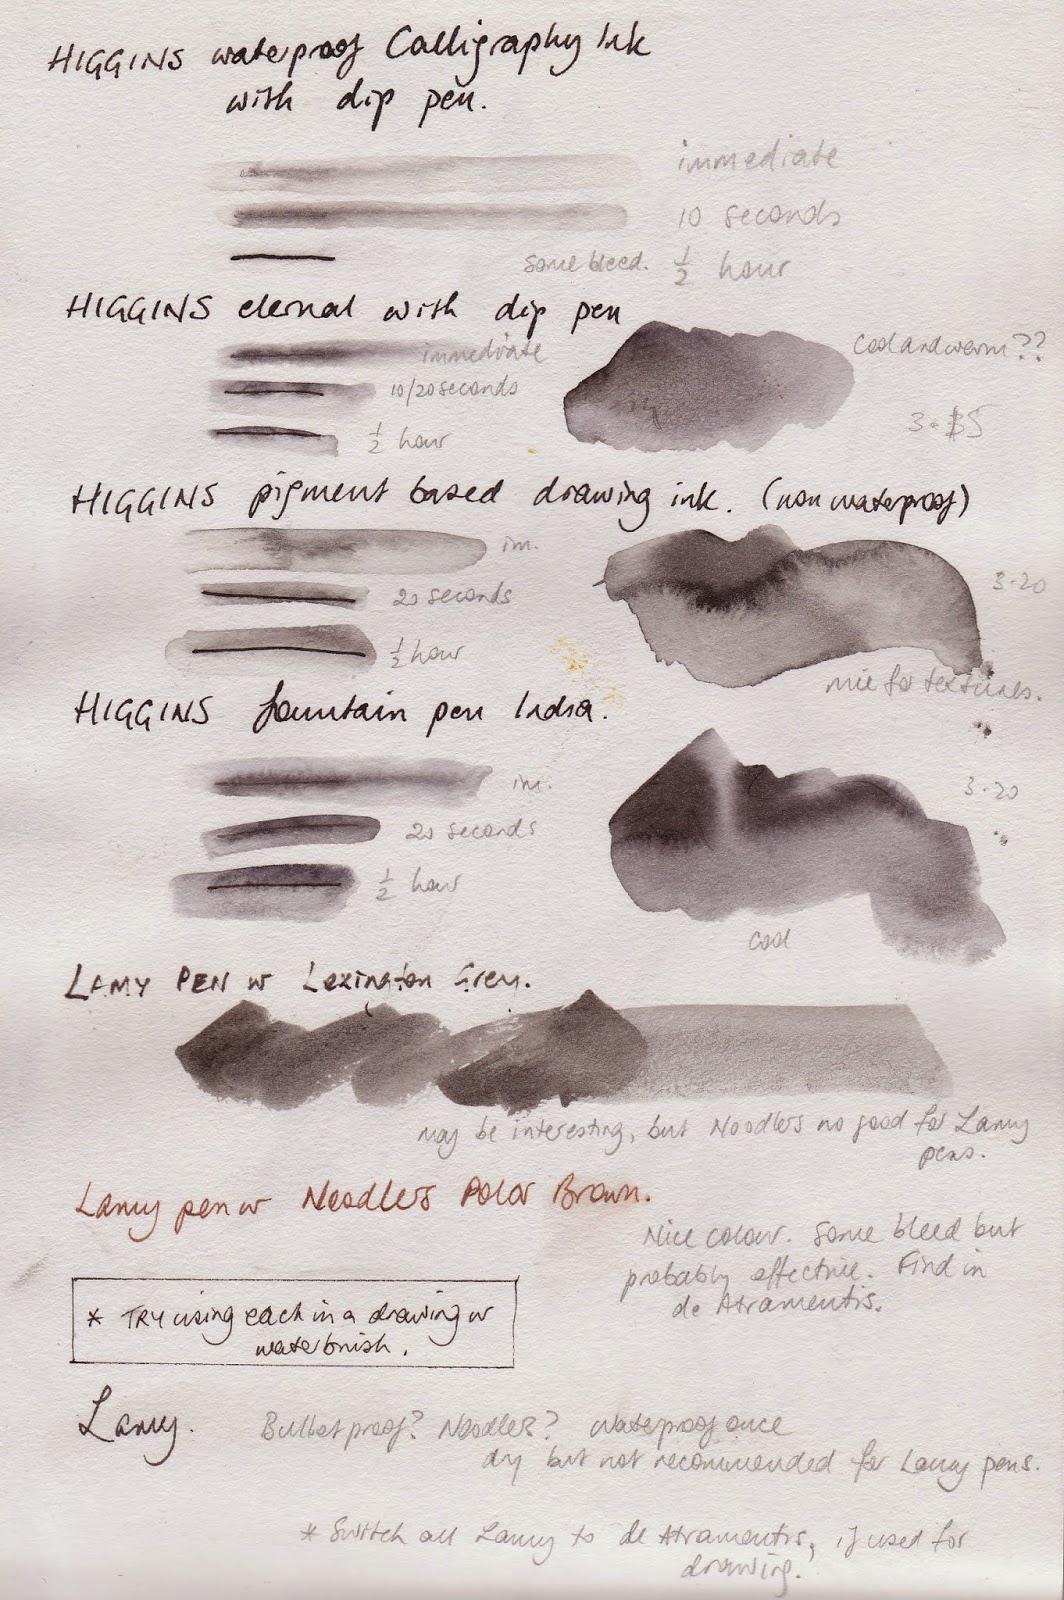 HIGGINS waterproof Calligraphy Ink
with dip pen.
immediate
10 seconds
some bleed. ½ hour
HIGGINS eternal with dip pen
immediate
cool and warm??
10/20 seconds
3.$5
½ hour
HIGGINS pigment based drawing ink. (non waterproof)
im.
20 seconds
3.20
½ hour
nice for textures.
HIGGINS fountain pen India.
im.
3.20
20 seconds
½ hour
cool
LAMY PEN w Lexington Grey.
may be interesting, but Noodlers no good for Lamy
pens.
Lamy pen w Noodlers Polar Brown.
Nice colour. Some bleed but
probably effective. Find in
de Atramentis.
* TRY using each in a drawing w
waterbrush.
Lamy.
Bulletproof? Noodlers? Waterproof once
dry but not recommended for Lamy pens.
* Switch all Lamy to de Atramentis, if used for
drawing.